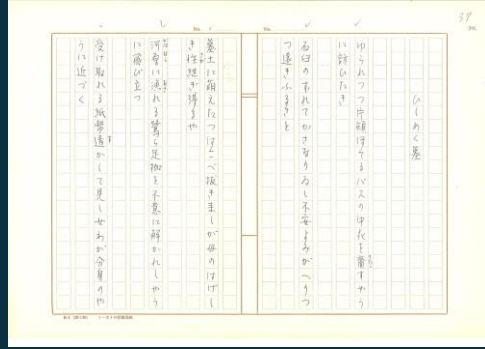 37
ひしめく墓
ゆられつつ片頬ほてるバスの中花を すやう
に詫びたき
石臼のずれてかさなりゐし不安よみがへりつ
つ遠きふるさと
墓土に萌えたつはこべ抜きましが母のはげし
き性継ぎ得るや
に流れる鷺ら足枷を不意に解かれしやう
に飛び立つ
受け取れる紙幣透かして見し女わが分身のや
うに近づく